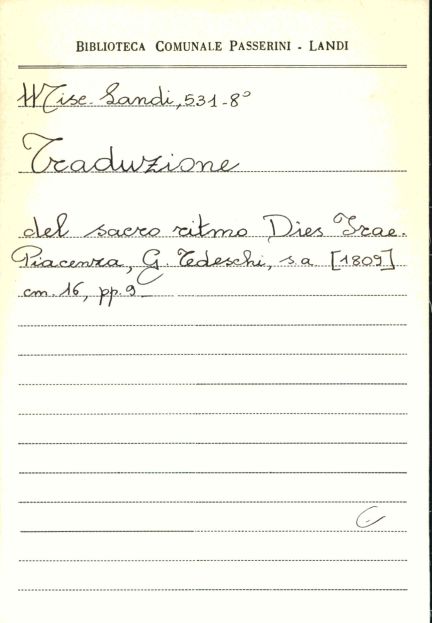 BIBLIOTECA COMUNALE PASSERINI - LANDI
Misc. Landi, 531-8°
Traduzione
del sacro ritmo Dies Irae.
Piacenza, G. Tedeschi, s.a. [1809]
cm. 16, pp. 9